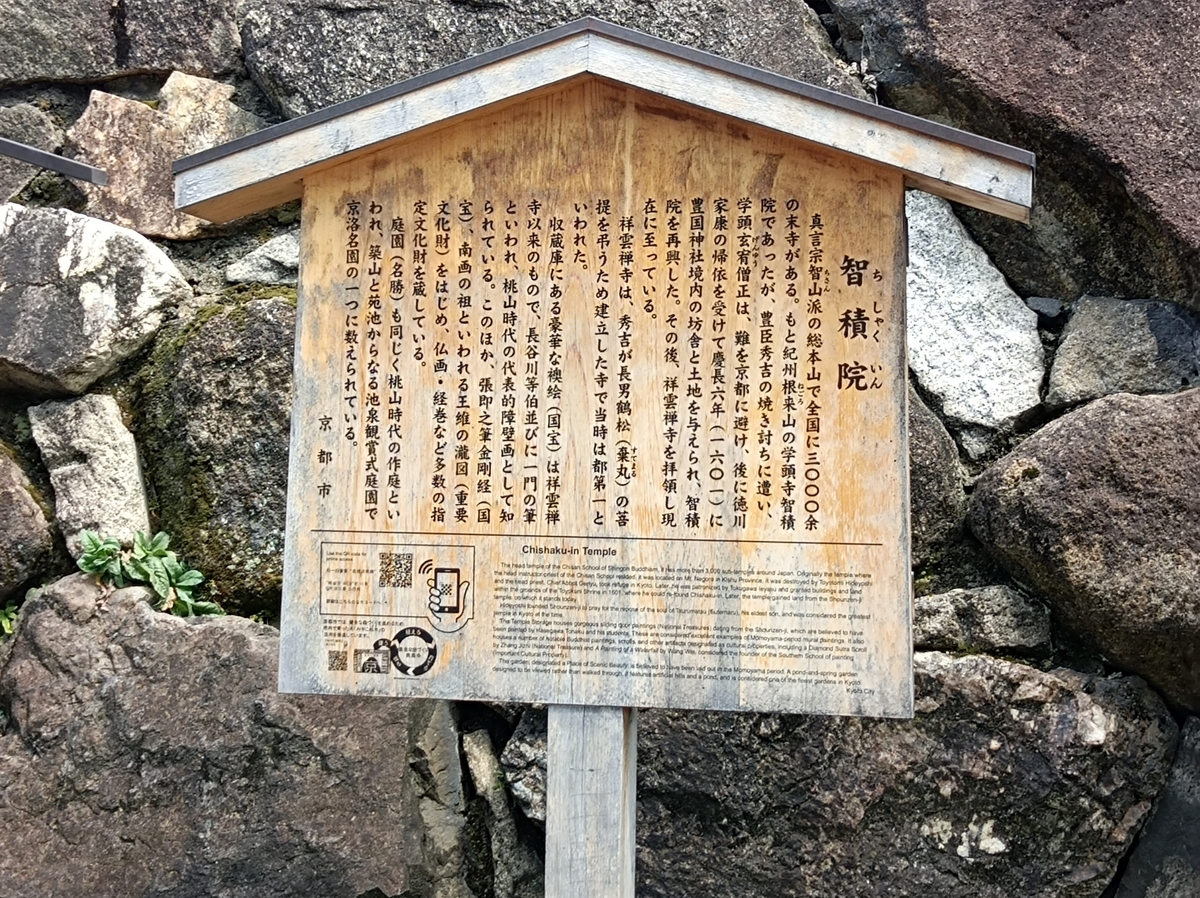 智積院
ちしゃくいん
真言宗智山派の総本山で全国に三〇〇〇余
の末寺がある。もと紀州根来山の学頭寺智積
院であったが、豊臣秀吉の焼き討ちに遭い、
学頭玄宥僧正は、難を京都に避け、後に徳川
家康の帰依を受けて慶長六年(一六〇一)に
豊国神社境内の坊舎と土地を与えられ、智積
院を再興した。その後、祥雲禅寺を拝領し現
在に至っている。
祥雲禅寺は、秀吉が長男鶴松(棄丸)の菩
提を弔うため建立した寺で当時は都第一と
いわれた。
収蔵庫にある豪華な襖絵(国宝)は祥雲禅
寺以来のもので、長谷川等伯並びに一門の筆
といわれ、桃山時代の代表的障壁画として知
られている。このほか、張即之筆金剛経(国
宝)、南画の祖といわれる王維の瀧図(重要
文化財)をはじめ、仏画・経巻など多数の指
定文化財を蔵している。
庭園(名勝)も同じく桃山時代の作庭とい
われ、築山と苑池からなる池泉観賞式庭園で
京洛名園の一つに数えられている。
京都市
Chishaku-in Temple
The head temple of the Chisan School of Shingon Buddhism, it has more than 3,000 sub-temples around Japan. Originally the temple where
the head instructor-priest of the Chisan School resided, it was located on Mt. Negoro in Kishu Province, it was destroyed by Toyotomi Hideyoshi
and the head priest, Chief Abbot Genyu, took refuge in Kyoto. Later, he was patronized by Tokugawa Ieyasu and granted buildings and land
within the grounds of the Toyokuni Shrine in 1601, where he could re-found Chishaku-in. Later, the temple gained land from the Shounzen-ji
temple, on which it stands today.
Hideyoshi founded Shounzen-ji to pray for the repose of the soul of Tsurumatsu (Sutemaru), his eldest son, and was considered the greatest
temple in Kyoto at the time.
The Temple Storage houses gorgeous sliding door paintings (National Treasures) dating from the Shounzen-ji, which are believed to have
been painted by Hasegawa Tohaku and his students. These are considered excellent examples of Momoyama-period mural paintings. It also
houses a number of Notable Buddhist paintings, scrolls, and other artifacts designated as cultural properties, including a Diamond Sutra Scroll
by Zhang Jizhi (National Treasure) and A Painting of a Waterfall by Wang Wei, considered the founder of the Southern School of painting
(Important Cultural Property).
The garden, designated a Place of Scenic Beauty, is believed to have been laid out in the Momoyama period. A pond-and-spring garden
designed to be viewed rather than walked through, it features artificial hills and a pond, and is considered one of the finest gardens in Kyoto.
Kyoto City